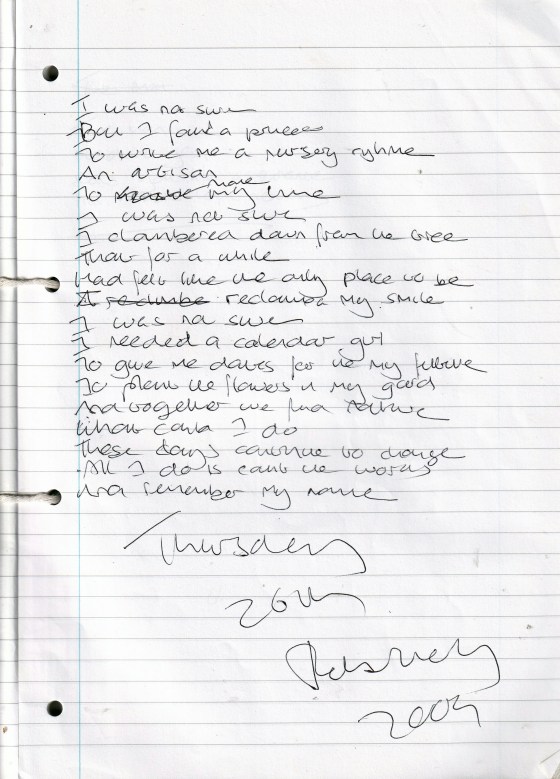 I was not sure
But I found a princess
To write me a nursery ryhme
An artisan
To my time
I was not sure
I clambered down from the tree
That for a while
Had felt like the only place to be
I reclimbe reclaimed my smile
I was not sure
I needed a calendar girl
To give me dates for the my future
To plant the flowers in my
And together we find
What could I do
These days continue to change
All I do is count the words
And remember my name
Thursday
26th
February
2009